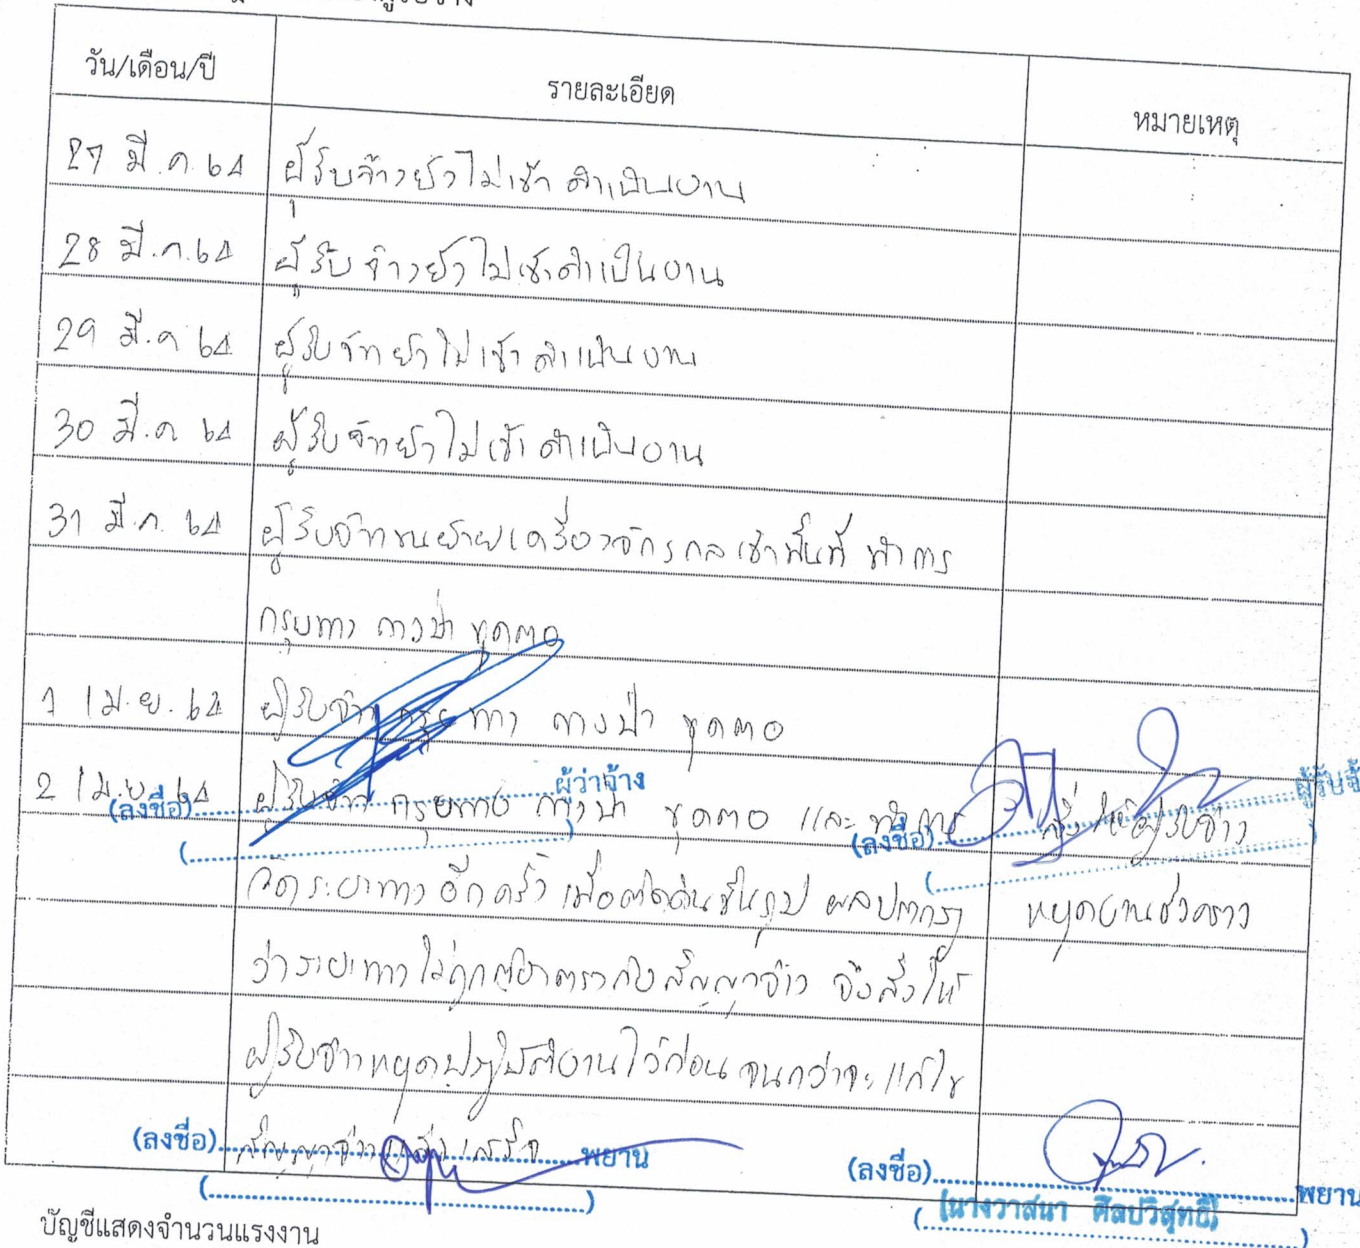 วัน/เดือน/ปี รายละเอียด หมายเหตุ
27 มี.ค. 64 ผู้รับจ้างยังไม่เข้าดำเนินงาน
28 มี.ค. 64 ผู้รับจ้างยังไม่เข้าดำเนินงาน
29 มี.ค 64 ผู้รับจ้างยังไม่เข้าดำเนินงาน
30 มี.ค 64 ผู้รับจ้างยังไม่เข้าดำเนินงาน
31 มี.ค. 64 ผู้รับจ้างขนย้ายเครื่องจักรกลเข้าพื้นที่ ทำการ
กรุยทาง ถางป่า ขุดตอ
1 เม.ย. 64 ผู้รับจ้าง กรุยทาง ถางป่า ขุดตอ
2 เม.ย. 64 ผู้รับจ้าง กรุยทาง ถางป่า ขุดตอ และทำการ สั่งให้ผู้รับจ้าง
(ลงชื่อ) ผู้ว่าจ้าง (ลงชื่อ) ผู้รับจ้
วัดระยะทาง อีกครั้ง เพื่อตัดดินขึ้นรูป ผลปรากฏ หยุดงานชั่วคราว
ว่าระยะทางไม่ถูกต้องตรงกับสัญญาจ้าง จึงสั่งให้
ผู้รับจ้างหยุดปฏิบัติงานไว้ก่อน จนกว่าจะแก้ไข
สัญญาจ้าง เสร็จ
(ลงชื่อ) พยาน (ลงชื่อ) พยาน
(นางวาสนา ศิลปวิสุทธิ์)
บัญชีแสดงจำนวนแรงงาน